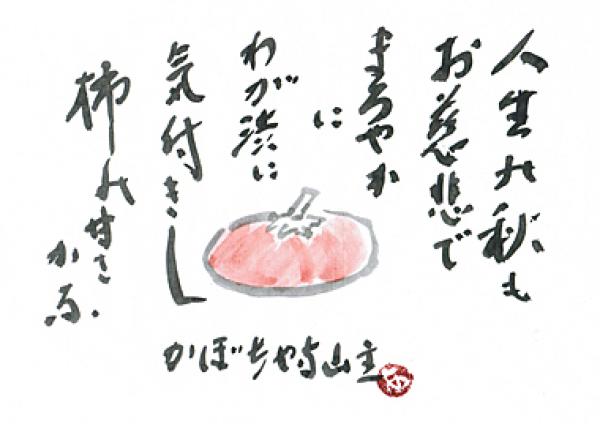 人生の秋も
お慈悲で
まろやか
に
わが渋に
気付きし
柿の甘さ
かな
かぼちゃ寺山主